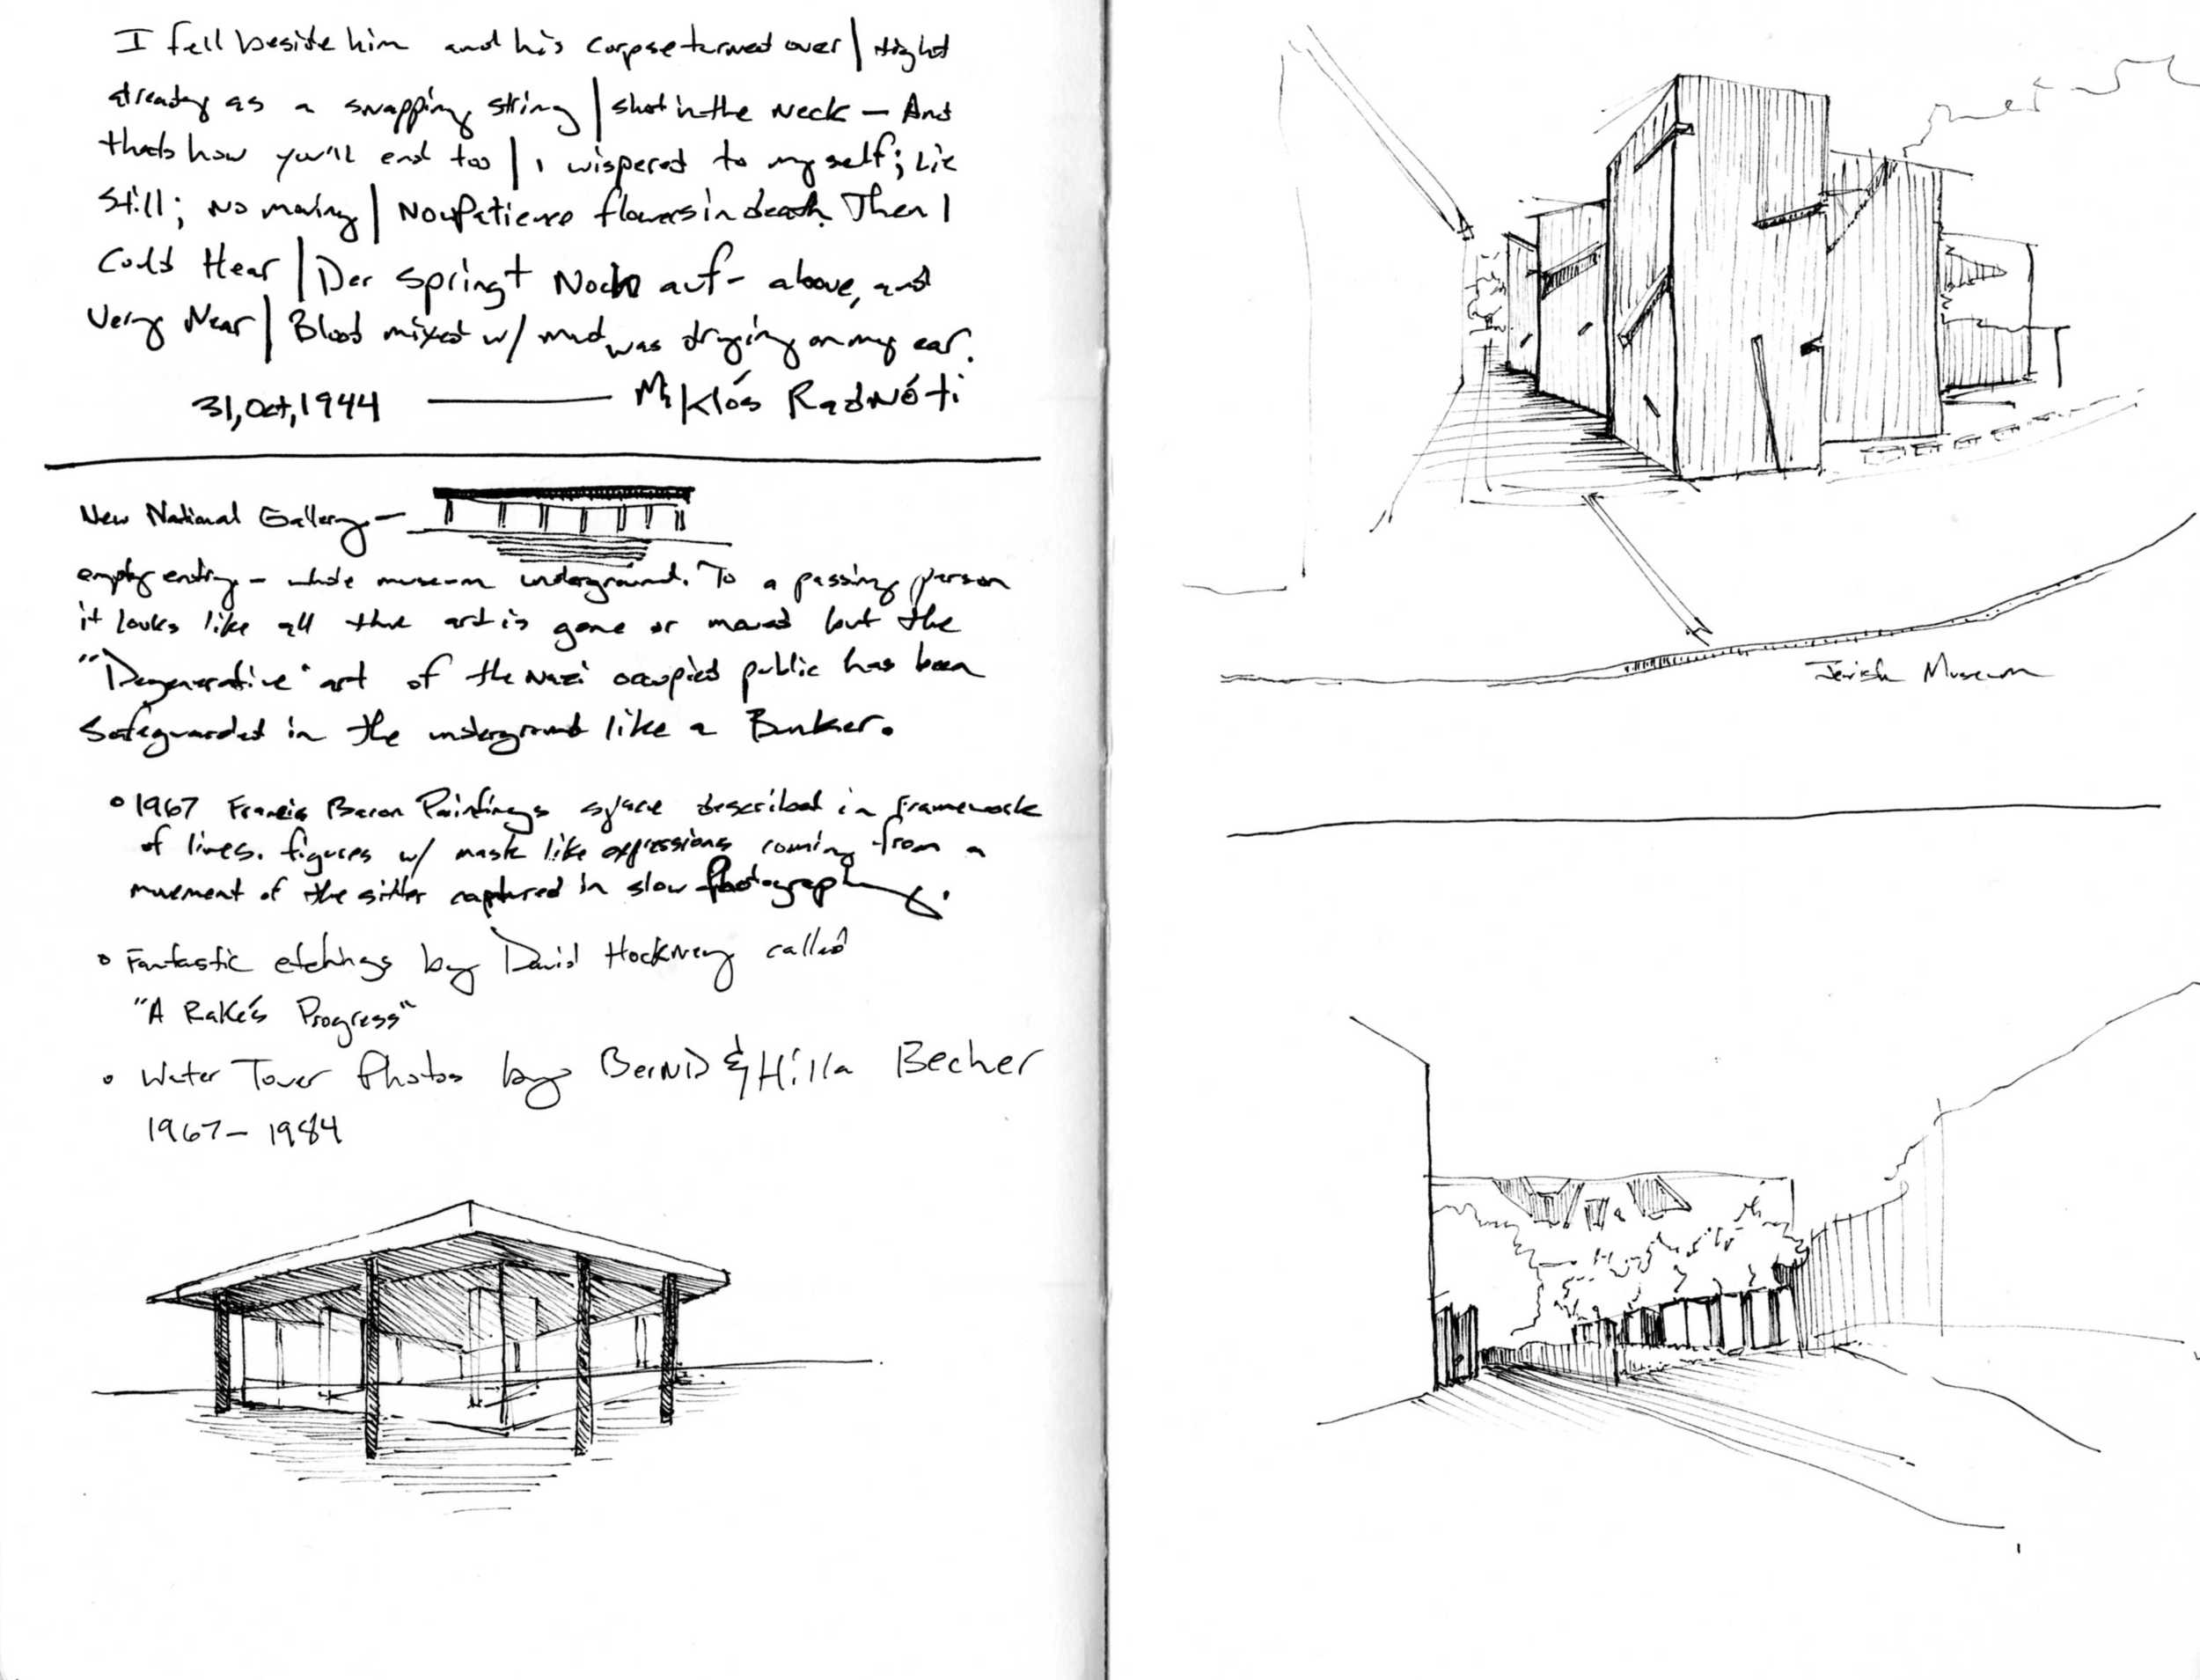 I fell beside him and his corpse turned over | tight
already as a snapping string | shot in the neck — And
thats how you'll end too | I wispered to myself; Lie
still; no moving | Now Patience flowers in death. Then I
Could Hear | Der springt Noch auf - above, and
Very Near | Blood mixed w/ mud was drying on my ear.
31, Oct, 1944 — Miklós Radnóti
New National Gallery -
empty entry - whole museum underground. To a passing person
it looks like all the art is gone or moved but the
"Degenerative" art of the Nazi occupied public has been
Safeguarded in the underground like a Bunker.
◦ 1967 Francis Bacon Paintings space described in framework
of lines. figures w/ mask like expressions coming from a
movement of the sitter captured in slow Photography.
◦ Fantastic etchings by David Hockney called
"A Rake's Progress"
◦ Water Tower Photos by Bernd & Hilla Becher
1967 - 1984
Jewish Museum